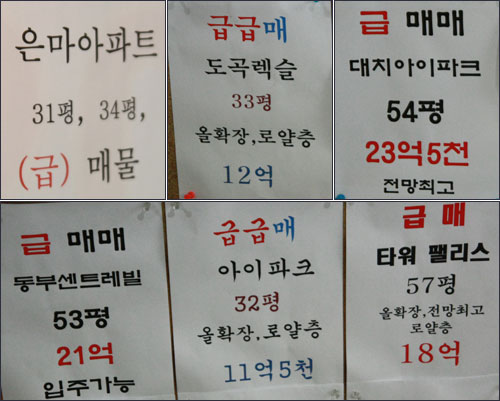 은마아파트
31평, 34평,
(급) 매물
급급매
도곡렉슬
33평
올확장,로얄층
12억
급 매매
대치아이파크
54평
23억5천
전망최고
급 매매
동부센트레빌
53평
21억
입주가능
급급매
아이파크
32평
올확장,로얄층
11억5천
급 매
타워 팰리스
57평
올확장,전망최고
로얄층
18억